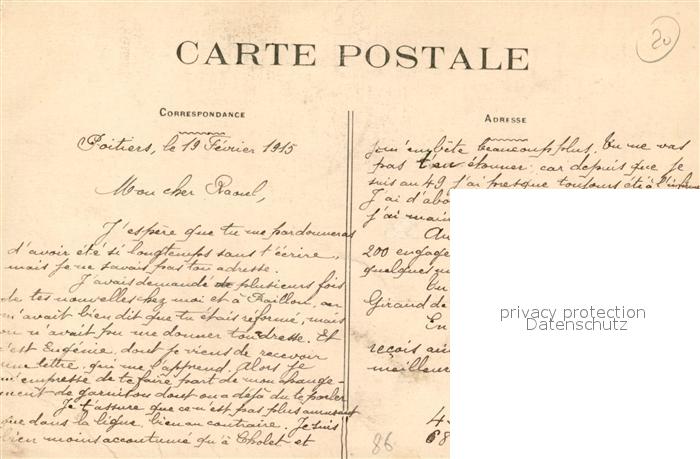 20
CARTE POSTALE
CORRESPONDANCE
Poitiers, le 19 Février 1915
Mon cher Raoul,
J'espère que tu me pardonneras
d'avoir été si longtemps sans t'écrire,
mais je ne savais pas ton adresse.
J'avais demandé plusieurs fois
de tes nouvelles chez moi et à on
m'avait bien dit que tu étais réformé, mais
on n'avait pu me donner ton adresse. Et
c'est Eugénie, dont je viens de recevoir
une lettre, qui me l'apprend. Alors je
m'empresse de te faire part de mon change-
ment de garnison dont on a déjà du te parler
Je t'assure que ce n'est pas plus amusant
que dans la ligne, bien au contraire. Je suis
bien moins accoutumé qu'à Cholet et
ADRESSE
je m'embête beaucoup plus. Tu ne vas
pas t'en étonner car depuis que je
suis au 49 j'ai presque toujours été à
J'ai d'abo
j'ai main
200 engagé
quelques
Girard de
En
reçois
meilleur
privacy protection
Datenschutz
4
68
86